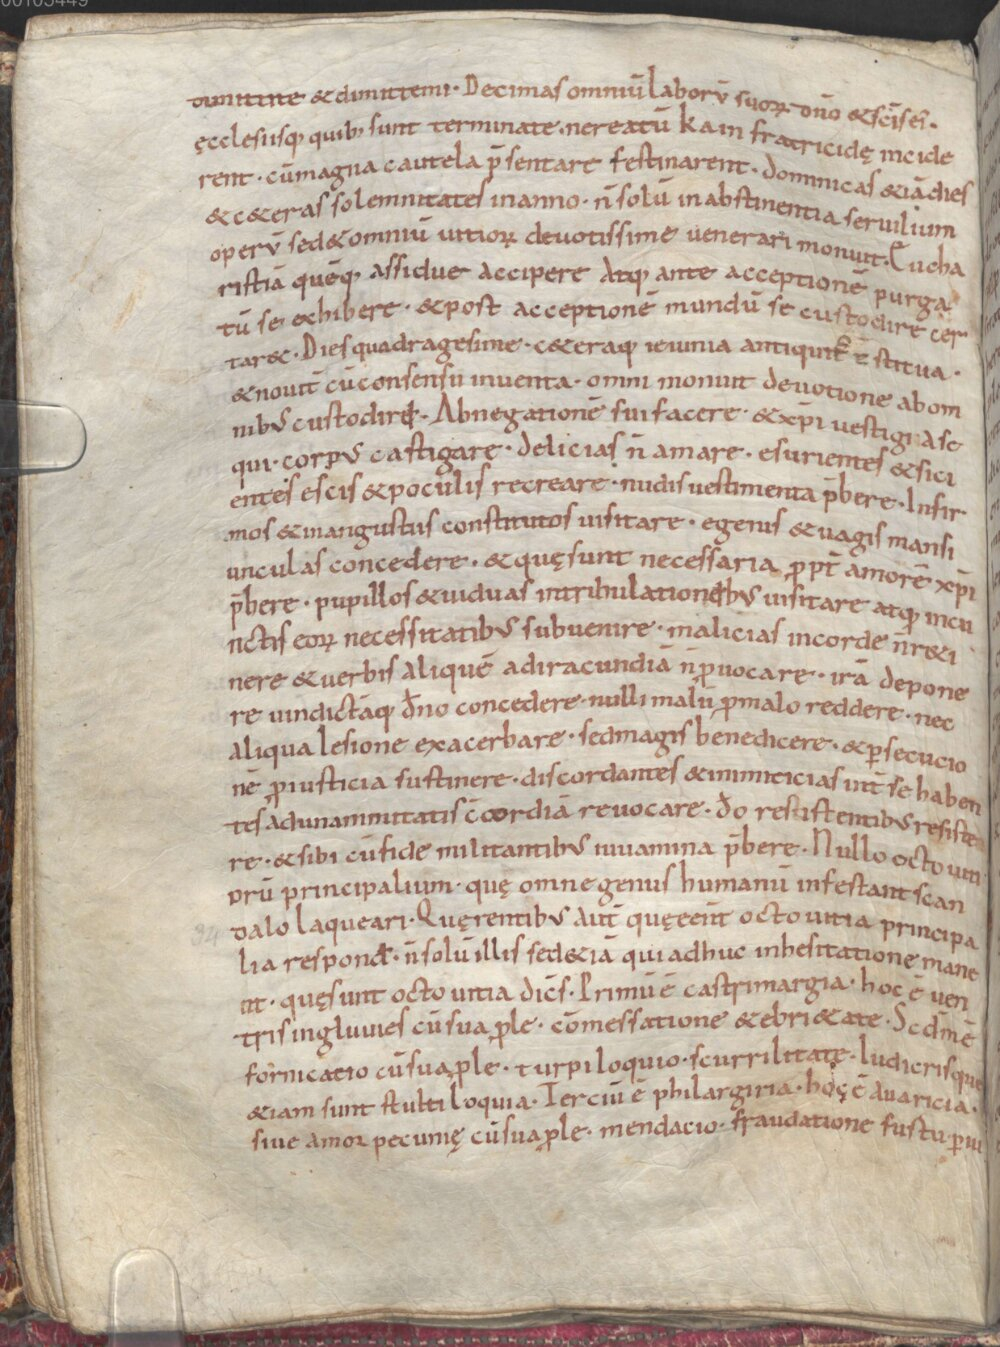 00103449
dimittite &dimittemi· Decimas omniū laborū suorꝝ dn̄o &sc̄is ei᷒·
ęcclesiisq; quib; sunt terminate· nereatū kain fratricidę incide
rent· cū magna cautela p̄sentare festinarent· dominicas &iā dies
&c&eras solemnitates in anno· n̄ solū in abstinentia seruilium
operū sed &omniū uitiorꝝ deuotissime uenerari monuit· Eucha
ristiā quēq; assidue accipere atq; ante acceptionē purga
tū se exhibere· &post acceptionē mundū se custodire cer
tar&· Dies quadragesime· c&eraq; ieiunia antiquit᷒ ēstitua·
&nouit̄ cū consensu inuenta· omni monuit deuotione abom
nibꝰ custodire· Abnegationē sui facere· &xp̄i uestigia se
qui· corpꝰ castigare· delicias n̄ amare· esurientes &sici
entes escis &poculis recreare· nudis uestimenta p̄bere· Infir
mos &inangustiis constitutos uisitare· egenis &uagis mansi
unculas concedere· &quę sunt necessaria ꝓpt̄ amorē xp̄i
p̄bere· pupillos &uiduas intribulationibꝰ uisitare atq; incu
nctis eorꝝ necessitatibꝰ subuenire· malicias incorde n̄ r&i
nere &uerbis aliquē adiracundiā n̄ ꝓuocare· irā depone
re uindictāq; dn̄o concedere· nulli malū ꝓmalo reddere· nec
aliqua lesione exacerbare· sedmagis benedicere· &ꝑsecucio
nē ꝓiusticia sustinere· discordantes &inimicicias int̄ se haben
tes adunanimitatis c̄cordiā reuocare· d̄o resistentibꝰ resiste
re· &sibi cū fide militantibꝰ iuuamina p̄bere· Nullo octo uiti
prū principalium· quę omne genus humanū infestant scan
dalo laqueari· Quęrentibꝰ aut̄ quę eēnt octo uitia principa
34
lia respond&· n̄ solū illis sed&iā qui adhuc inhesitatione mane
nt· quę sunt octo uitia dic̄s· Primū ē castrimargia· hoc ē uen
tris ingluuies cū sua ꝓle· cōmessatione &ebri&ate· Scd̄m ē
fornicatio cū sua ꝓle· turpiloquio· scurrilitatę· ludicrisque
&iam sunt stultiloquia· Terciū ē philargiria· hoç ē auaricia·
siue amor pecunię cū sua ꝓle· mendacio· fraudatione fustu· ꝑiu